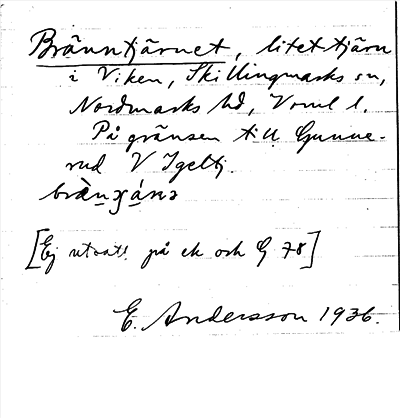 Bränntjärnet, litet tjärn
i Viken, Skillingmarks sn,
Nordmarks hd, Värml l.
På gränsen till Gunne-
rud V Igeltj.
[Ej utsatt på ek och G 78]
E. Andersson 1936.